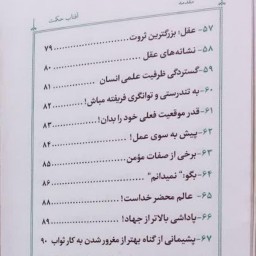 مقدمه
آفتاب حکمت
۵۷- عقل؛ بزرگترین ثروت ........ ۷۹
۵۸- نشانه‌های عقل ........ ۸۰
۵۹- گستردگی ظرفیت علمی انسان ........ ۸۱
۶۰- به تندرستی و توانگری فریفته مباش! ........ ۸۲
۶۱- قدر موقعیت فعلی خود را بدان! ........ ۸۳
۶۲- پیش به سوی عمل! ........ ۸۴
۶۳- برخی از صفات مؤمن ........ ۸۵
۶۴- بگو: "نمیدانم" ........ ۸۶
۶۵- عالم محضر خداست! ........ ۸۸
۶۶- پاداشی بالاتر از جهاد! ........ ۸۹
۶۷- پشیمانی از گناه بهتر از مغرور شدن به کار ثواب ۹۰